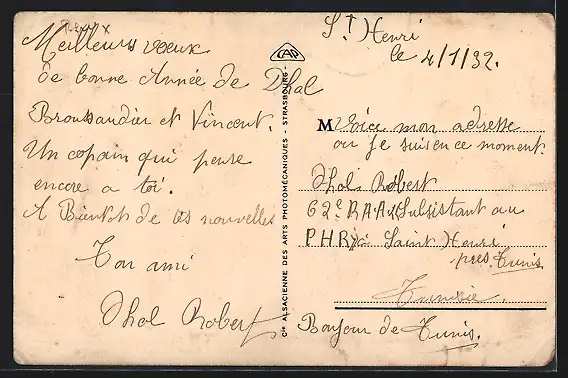 Meilleurs voeux
de bonne Année de Dhol
Broussaudier et Vincent.
Un copain qui pense
encore a toi.
A Bientot de tes nouvelles
Ton ami
Dhol Robert
CAP
Cie ALSACIENNE DES ARTS PHOTOMÉCANIQUES - STRASBOURG
St Henri
le 4/1/32.
M Voici mon adresse
ou Je suis en ce moment
Dhol Robert
62e R.A.A. Subsistant au
PHR Saint Henri
près Tunis
Tunisie.
Bonjour de Tunis.